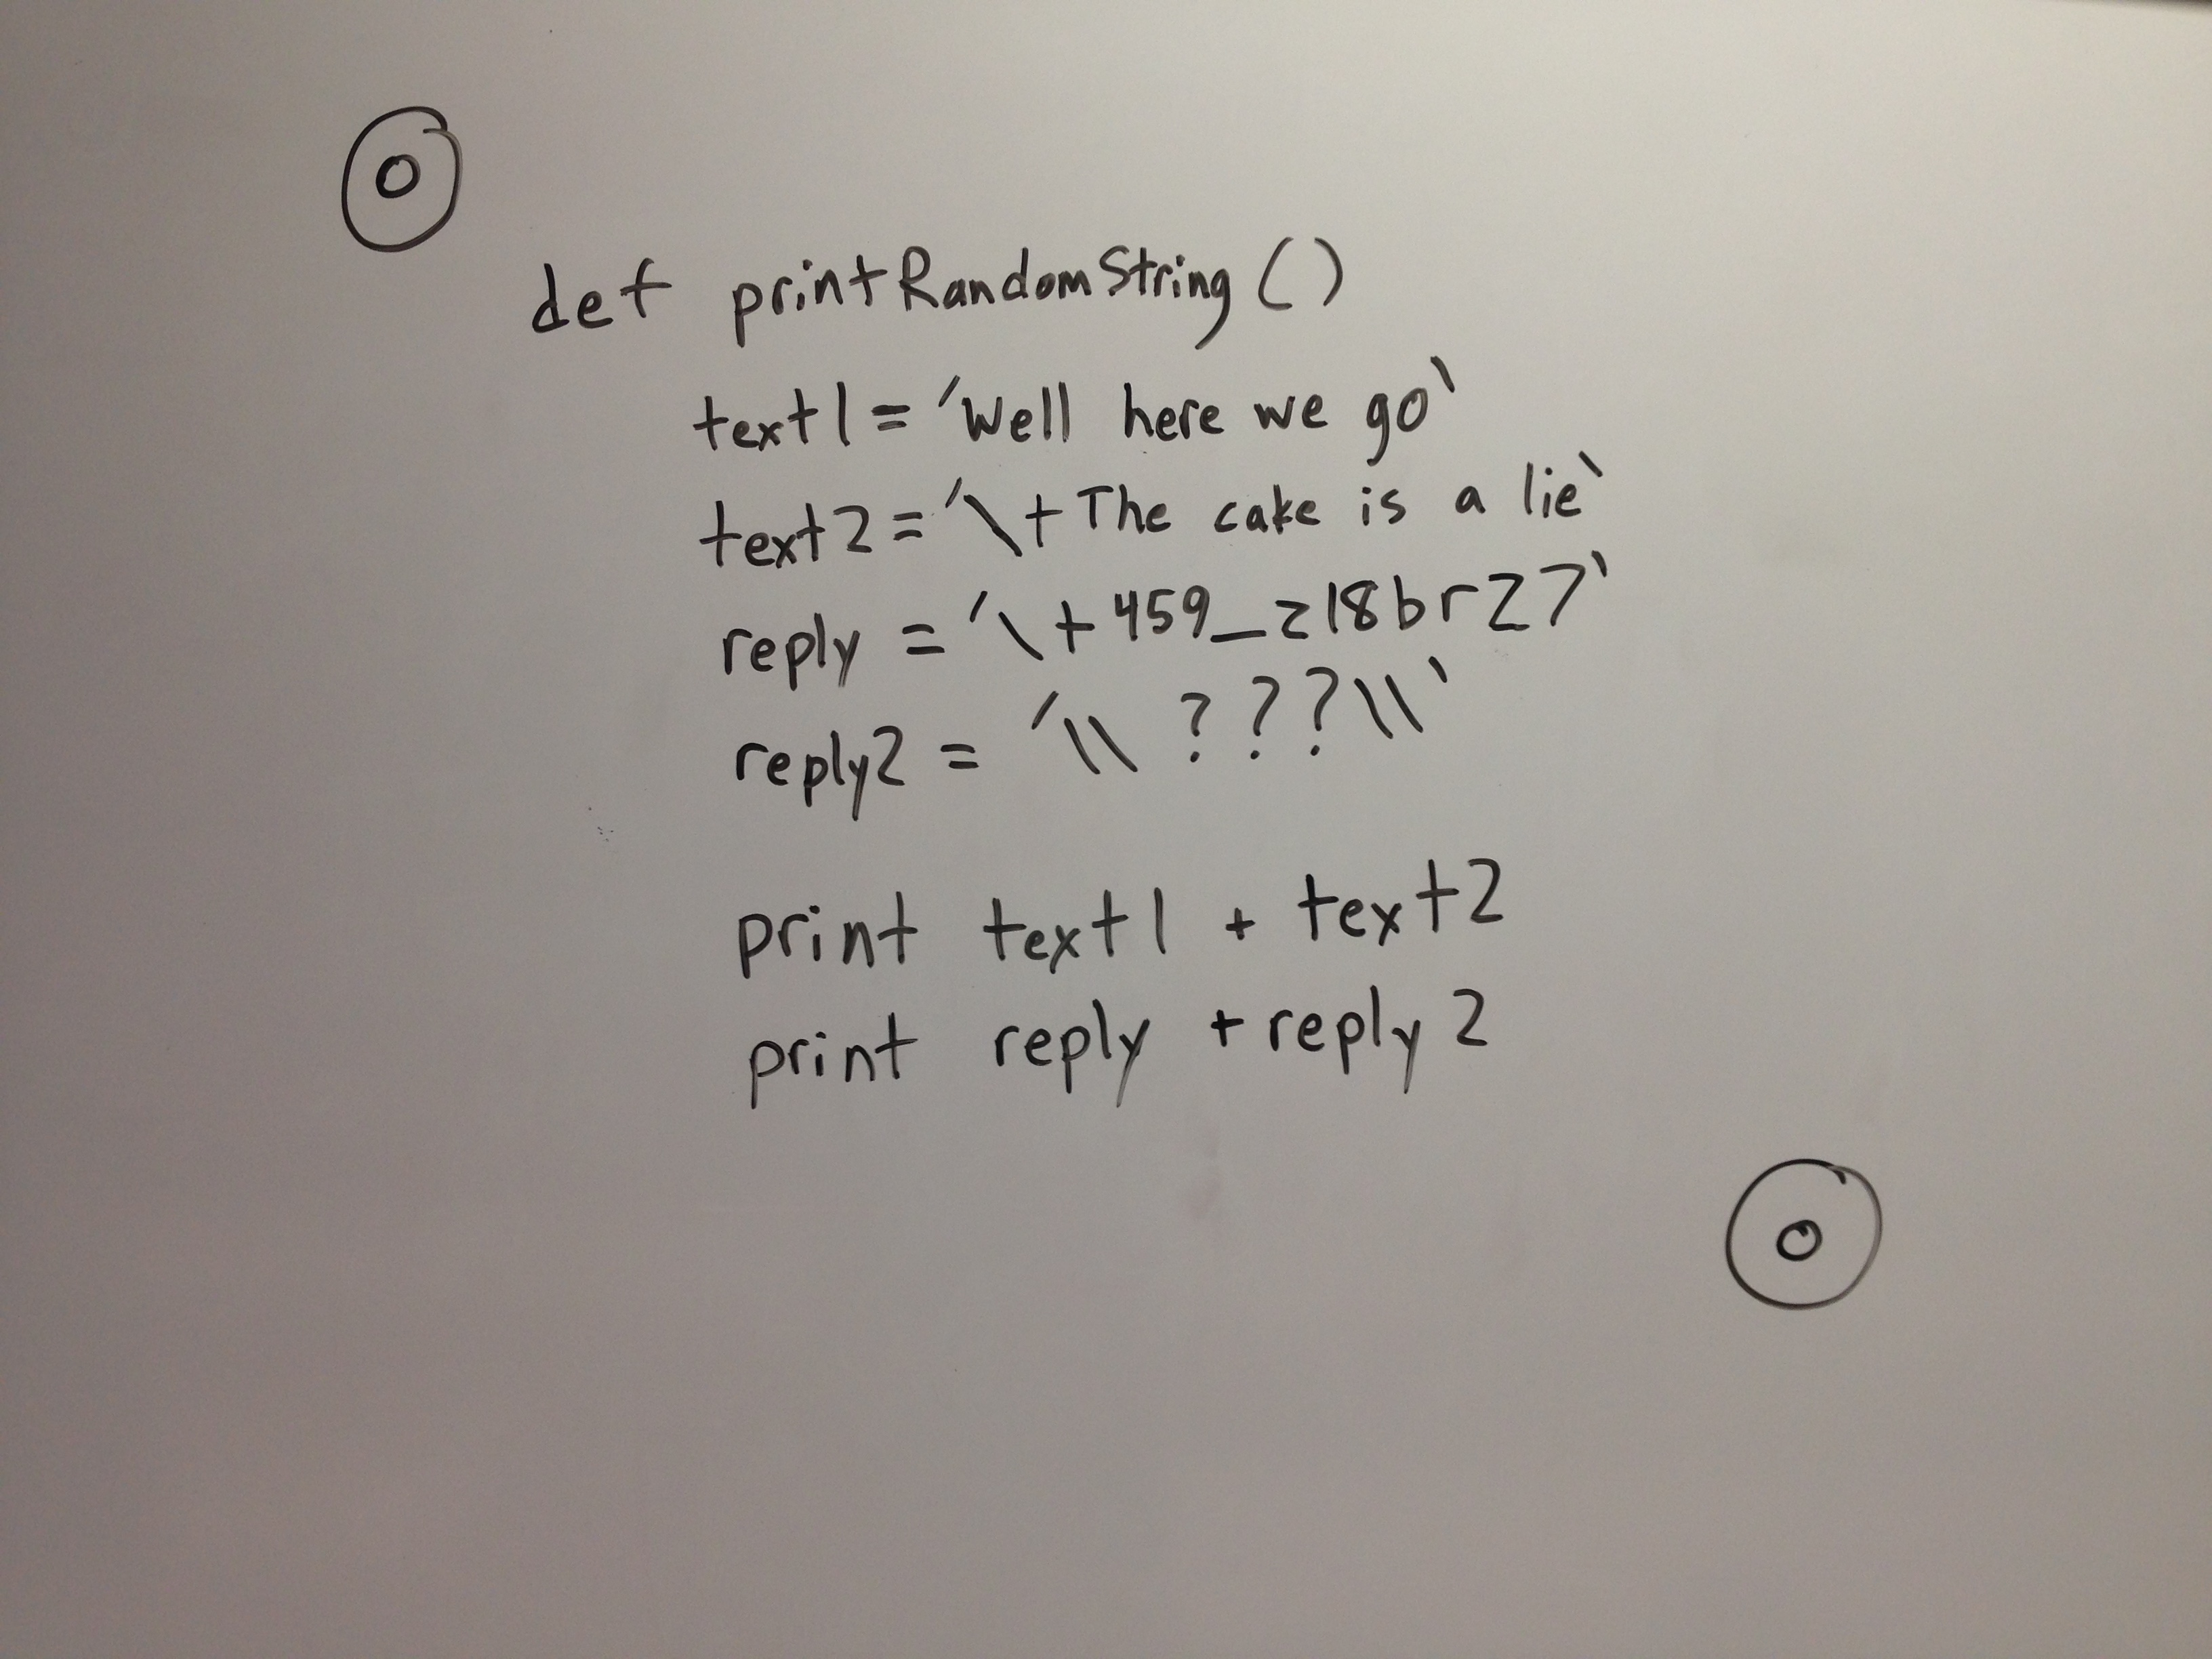 O
def printRandomString()
text1 = 'Well here we go'
text2 = '\tThe cake is a lie'
reply = '\t459_z18brZ7'
reply2 = '\\ ???\\'
print text1 + text2
print reply + reply2
O